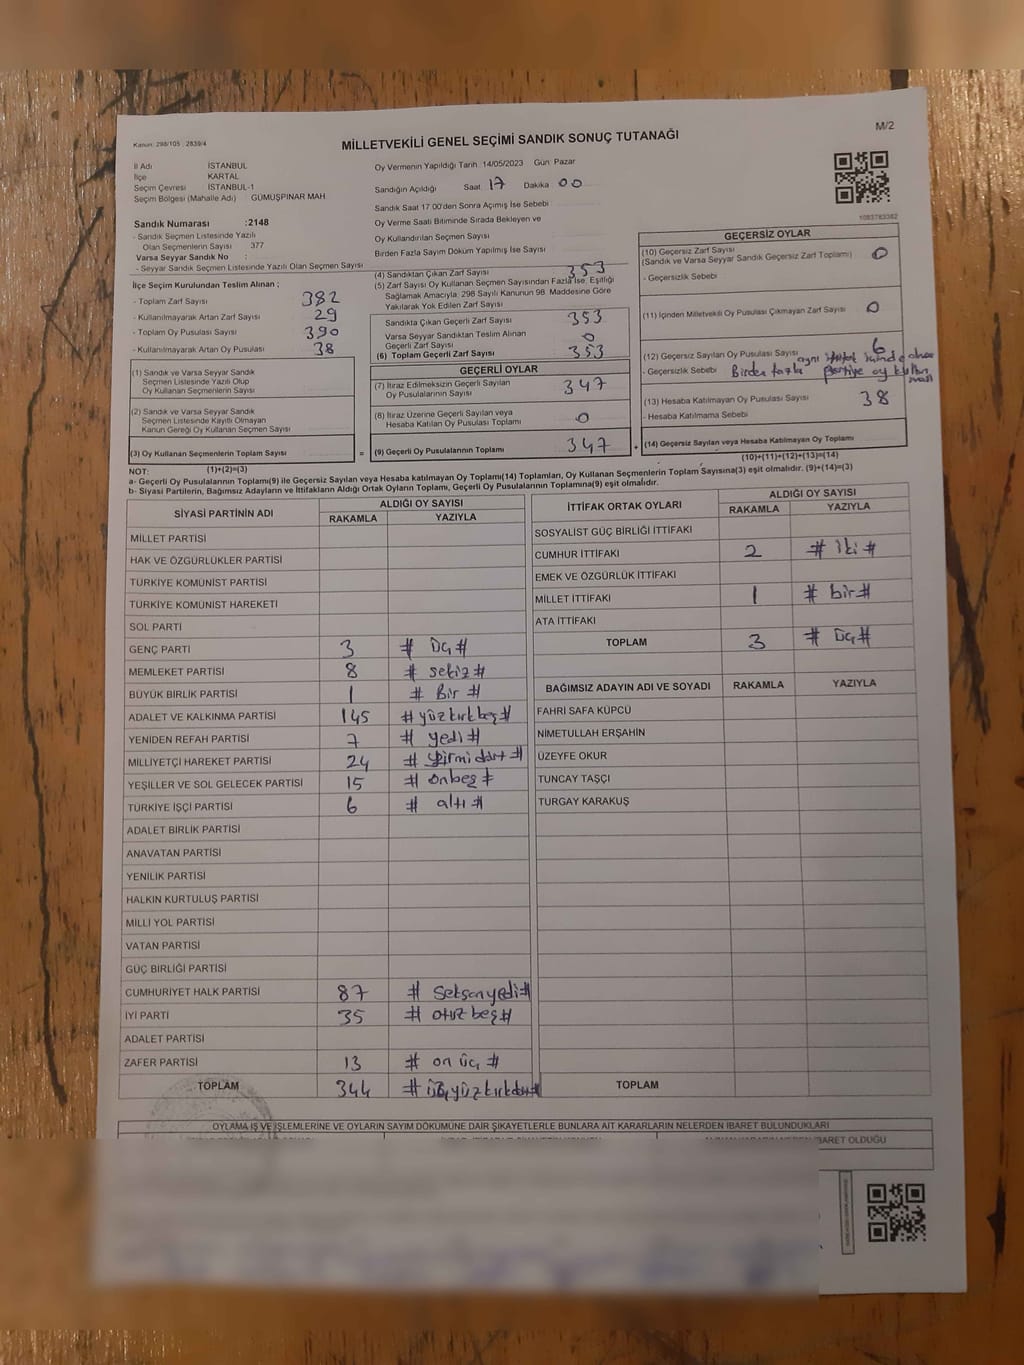 M/2
Kanun: 298/105 ; 2839/4
MİLLETVEKİLİ GENEL SEÇİMİ SANDIK SONUÇ TUTANAĞI
İl Adı İSTANBUL
İlçe KARTAL
Seçim Çevresi İSTANBUL-1
Seçim Bölgesi (Mahalle Adı) GÜMÜŞPINAR MAH
Sandık Numarası :2148
- Sandık Seçmen Listesinde Yazılı
Olan Seçmenlerin Sayısı 377
Varsa Seyyar Sandık No :
- Seyyar Sandık Seçmen Listesinde Yazılı Olan Seçmen Sayısı
İlçe Seçim Kurulundan Teslim Alınan ;
- Toplam Zarf Sayısı 382
- Kullanılmayarak Artan Zarf Sayısı 29
- Toplam Oy Pusulası Sayısı 390
- Kullanılmayarak Artan Oy Pusulası 38
(1) Sandık ve Varsa Seyyar Sandık
Seçmen Listesinde Yazılı Olup
Oy Kullanan Seçmenlerin Sayısı
(2) Sandık ve Varsa Seyyar Sandık
Seçmen Listesinde Kayıtlı Olmayan
Kanun Gereği Oy Kullanan Seçmen Sayısı
(3) Oy Kullanan Seçmenlerin Toplam Sayısı
(1)+(2)=(3)
Oy Vermenin Yapıldığı Tarih 14/05/2023 Gün Pazar
Sandığın Açıldığı Saat 17 Dakika 00
Sandık Saat 17:00'den Sonra Açımış İse Sebebi
Oy Verme Saati Bitiminde Sırada Bekleyen ve
Oy Kullandırılan Seçmen Sayısı
Birden Fazla Sayım Döküm Yapılmış İse Sayısı
(4) Sandıktan Çıkan Zarf Sayısı 353
(5) Zarf Sayısı Oy Kullanan Seçmen Sayısından Fazla İse, Eşitliği
Sağlamak Amacıyla; 298 Sayılı Kanunun 98. Maddesine Göre
Yakılarak Yok Edilen Zarf Sayısı
Sandıkta Çıkan Geçerli Zarf Sayısı 353
Varsa Seyyar Sandıktan Teslim Alınan
Geçerli Zarf Sayısı 0
(6) Toplam Geçerli Zarf Sayısı 353
GEÇERLİ OYLAR
(7) İtiraz Edilmeksizin Geçerli Sayılan
Oy Pusulalarının Sayısı 347
(8) İtiraz Üzerine Geçerli Sayılan veya
Hesaba Katılan Oy Pusulası Toplamı 0
= (9) Geçerli Oy Pusulalarının Toplamı 347 +
1083783382
GEÇERSİZ OYLAR
(10) Geçersiz Zarf Sayısı
(Sandık ve Varsa Seyyar Sandık Geçersiz Zarf Toplamı) 0
- Geçersizlik Sebebi
(11) İçinden Milletvekili Oy Pusulası Çıkmayan Zarf Sayısı 0
(12) Geçersiz Sayılan Oy Pusulası Sayısı 6
- Geçersizlik Sebebi Birden fazla aynı ittifak içinde olan partiye oy
(13) Hesaba Katılmayan Oy Pusulası Sayısı 38
- Hesaba Katılmama Sebebi
(14) Geçersiz Sayılan veya Hesaba Katılmayan Oy Toplamı
(10)+(11)+(12)+(13)=(14)
NOT:
a- Geçerli Oy Pusulalarının Toplamı(9) ile Geçersiz Sayılan veya Hesaba katılmayan Oy Toplamı(14) Toplamları, Oy Kullanan Seçmenlerin Toplam Sayısına(3) eşit olmalıdır. (9)+(14)=(3)
b- Siyasi Partilerin, Bağımsız Adayların ve İttifakların Aldığı Ortak Oyların Toplamı, Geçerli Oy Pusulalarının Toplamına(9) eşit olmalıdır.
SİYASİ PARTİNİN ADI ALDIĞI OY SAYISI
RAKAMLA YAZIYLA
MİLLET PARTİSİ
HAK VE ÖZGÜRLÜKLER PARTİSİ
TÜRKİYE KOMÜNİST PARTİSİ
TÜRKİYE KOMÜNİST HAREKETİ
SOL PARTİ
GENÇ PARTİ 3 # Üç #
MEMLEKET PARTİSİ 8 # sekiz #
BÜYÜK BİRLİK PARTİSİ 1 # Bir #
ADALET VE KALKINMA PARTİSİ 145 # yüzkırkbeş #
YENİDEN REFAH PARTİSİ 7 # yedi #
MİLLİYETÇİ HAREKET PARTİSİ 24 # yirmi dört #
YEŞİLLER VE SOL GELECEK PARTİSİ 15 # onbeş #
TÜRKİYE İŞÇİ PARTİSİ 6 # altı #
ADALET BİRLİK PARTİSİ
ANAVATAN PARTİSİ
YENİLİK PARTİSİ
HALKIN KURTULUŞ PARTİSİ
MİLLİ YOL PARTİSİ
VATAN PARTİSİ
GÜÇ BİRLİĞİ PARTİSİ
CUMHURİYET HALK PARTİSİ 87 # seksenyedi #
İYİ PARTİ 35 # otuz beş #
ADALET PARTİSİ
ZAFER PARTİSİ 13 # on üç #
TOPLAM 344 # üçyüzkırkdört #
İTTİFAK ORTAK OYLARI ALDIĞI OY SAYISI
RAKAMLA YAZIYLA
SOSYALİST GÜÇ BİRLİĞİ İTTİFAKI
CUMHUR İTTİFAKI 2 # iki #
EMEK VE ÖZGÜRLÜK İTTİFAKI
MİLLET İTTİFAKI 1 # bir #
ATA İTTİFAKI
TOPLAM 3 # Üç #
BAĞIMSIZ ADAYIN ADI VE SOYADI RAKAMLA YAZIYLA
FAHRİ SAFA KÜPCÜ
NİMETULLAH ERŞAHİN
ÜZEYFE OKUR
TUNCAY TAŞÇI
TURGAY KARAKUŞ
TOPLAM
OYLAMA İŞ VE İŞLEMLERİNE VE OYLARIN SAYIM DÖKÜMÜNE DAİR ŞİKAYETLERLE BUNLARA AİT KARARLARIN NELERDEN İBARET BULUNDUKLARI
İBARET OLDUĞU